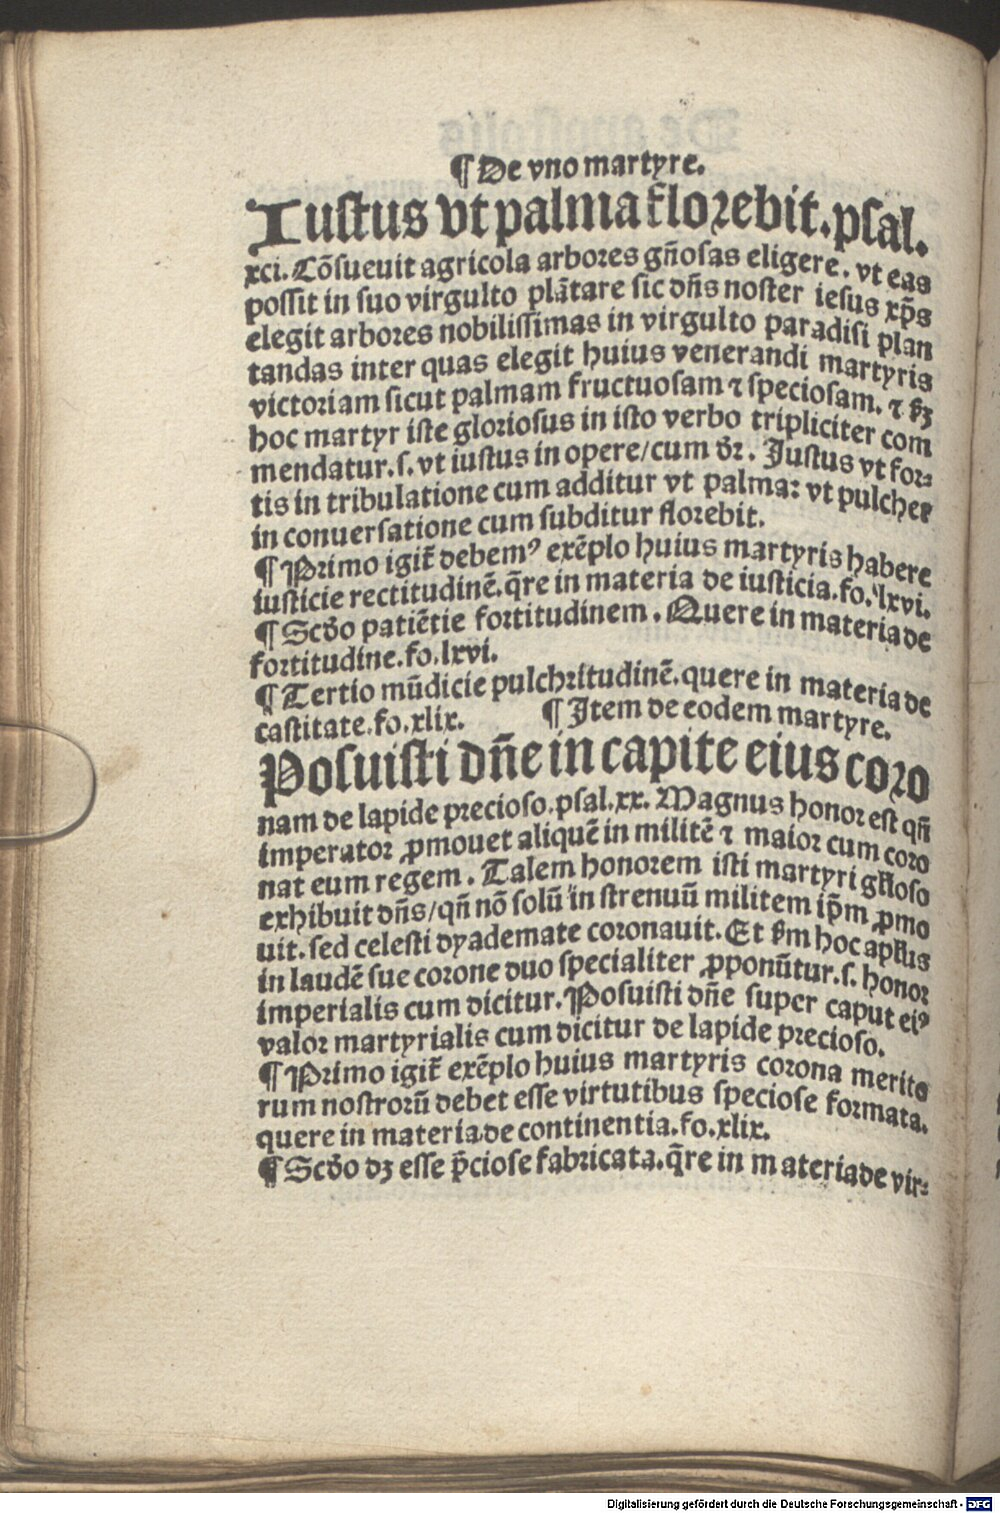 ¶ De vno martyre.
Iustus vt palma florebit. psal.
xci. Cõsueuit agricola arbores gñosas eligere. vt eas
possit in suo virgulto plãtare sic dñs noster iesus xp̃s
elegit arbores nobilissimas in virgulto paradisi plan
tandas inter quas elegit huius venerandi martyris
victoriam sicut palmam fructuosam ⁊ speciosam. ⁊ ẜm
hoc martyr iste gloriosus in isto verbo tripliciter com
mendatur. s. vt iustus in opere/cum dr̃. Justus vt for⸗
tis in tribulatione cum additur vt palma: vt pulcher
in conuersatione cum subditur florebit.
¶ Primo igit̃ debemꝰ exẽplo huius martyris habere
iusticie rectitudinẽ. q̃re in materia de iusticia. fo. lxvi.
¶ Scd̃o patiẽtie fortitudinem. Quere in materia de
fortitudine. fo. lxvi.
¶ Tertio mũdicie pulchritudinẽ. quere in materia de
castitate. fo. xlix. ¶ Item de eodem martyre.
Posuisti dñe in capite eius coro
nam de lapide precioso. psal. xx. Magnus honor est qñ
imperator ꝓmouet aliquẽ in militẽ ⁊ maior cum coro
nat eum regem. Talem honorem isti martyri gl̃ioso
exhibuit dñs/qñ nõ solũ in strenuũ militem ip̃m ꝓmo
uit. sed celesti dyademate coronauit. Et ẜm hoc apl̃us
in laudẽ sue corone duo specialiter ꝓponũtur. s. honor
imperialis cum dicitur. Posuisti dñe super caput eiꝰ
valor martyrialis cum dicitur de lapide precioso.
¶ Primo igit̃ exẽplo huius martyris corona merito
rum nostrorũ debet esse virtutibus speciose formata.
quere in materia de continentia. fo. xlix.
¶ Scd̃o dꝫ esse p̃ciose fabricata. q̃re in materia de vir⸗
Digitalisierung gefördert durch die Deutsche Forschungsgemeinschaft - DFG